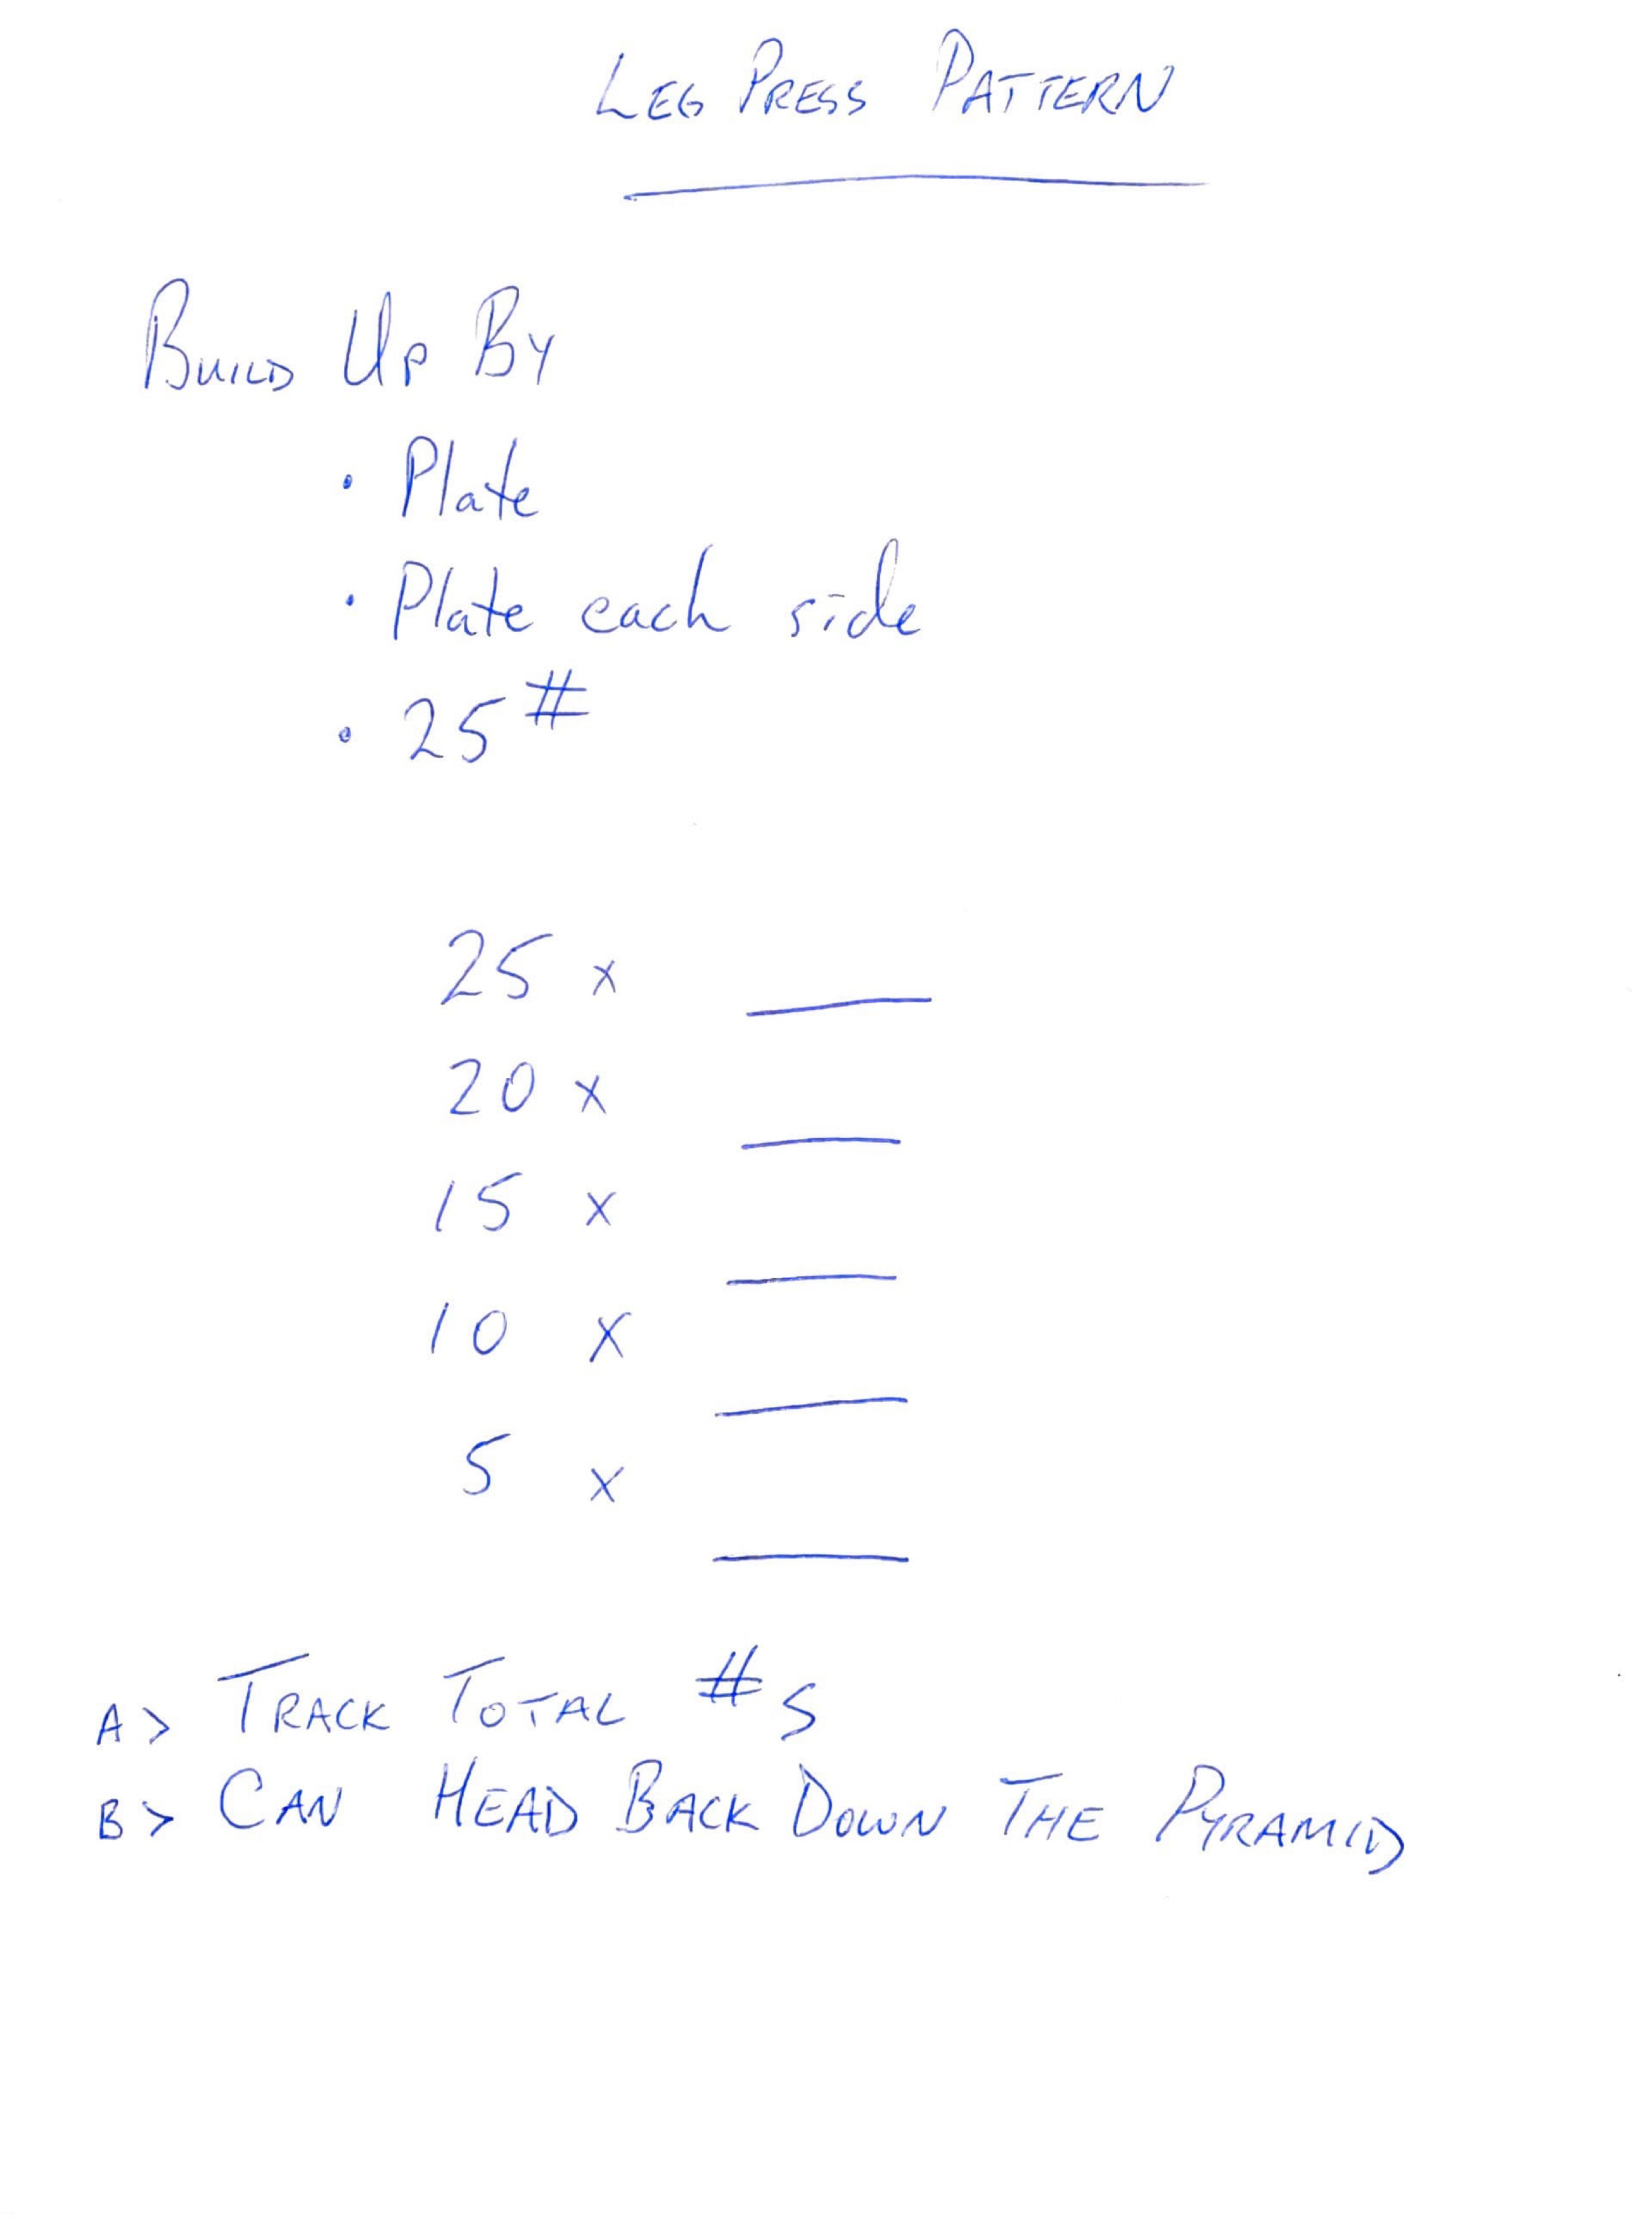 LEG PRESS PATTERN
BUILD UP BY
• Plate
• Plate each side
• 25#
25 x ____
20 x ____
15 x ____
10 x ____
5 x ____
A> TRACK TOTAL #s
B> CAN HEAD BACK DOWN THE PYRAMID